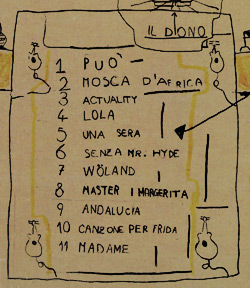 IL DIONO
1 PUÒ
2 MOSCA D'AFRICA
3 ACTUALITY
4 LOLA
5 UNA SERA
6 SENZA MR. HYDE
7 WÖLAND
8 MASTER I MARGERITA
9 ANDALUCIA
10 CANZONE PER FRIDA
11 MADAME